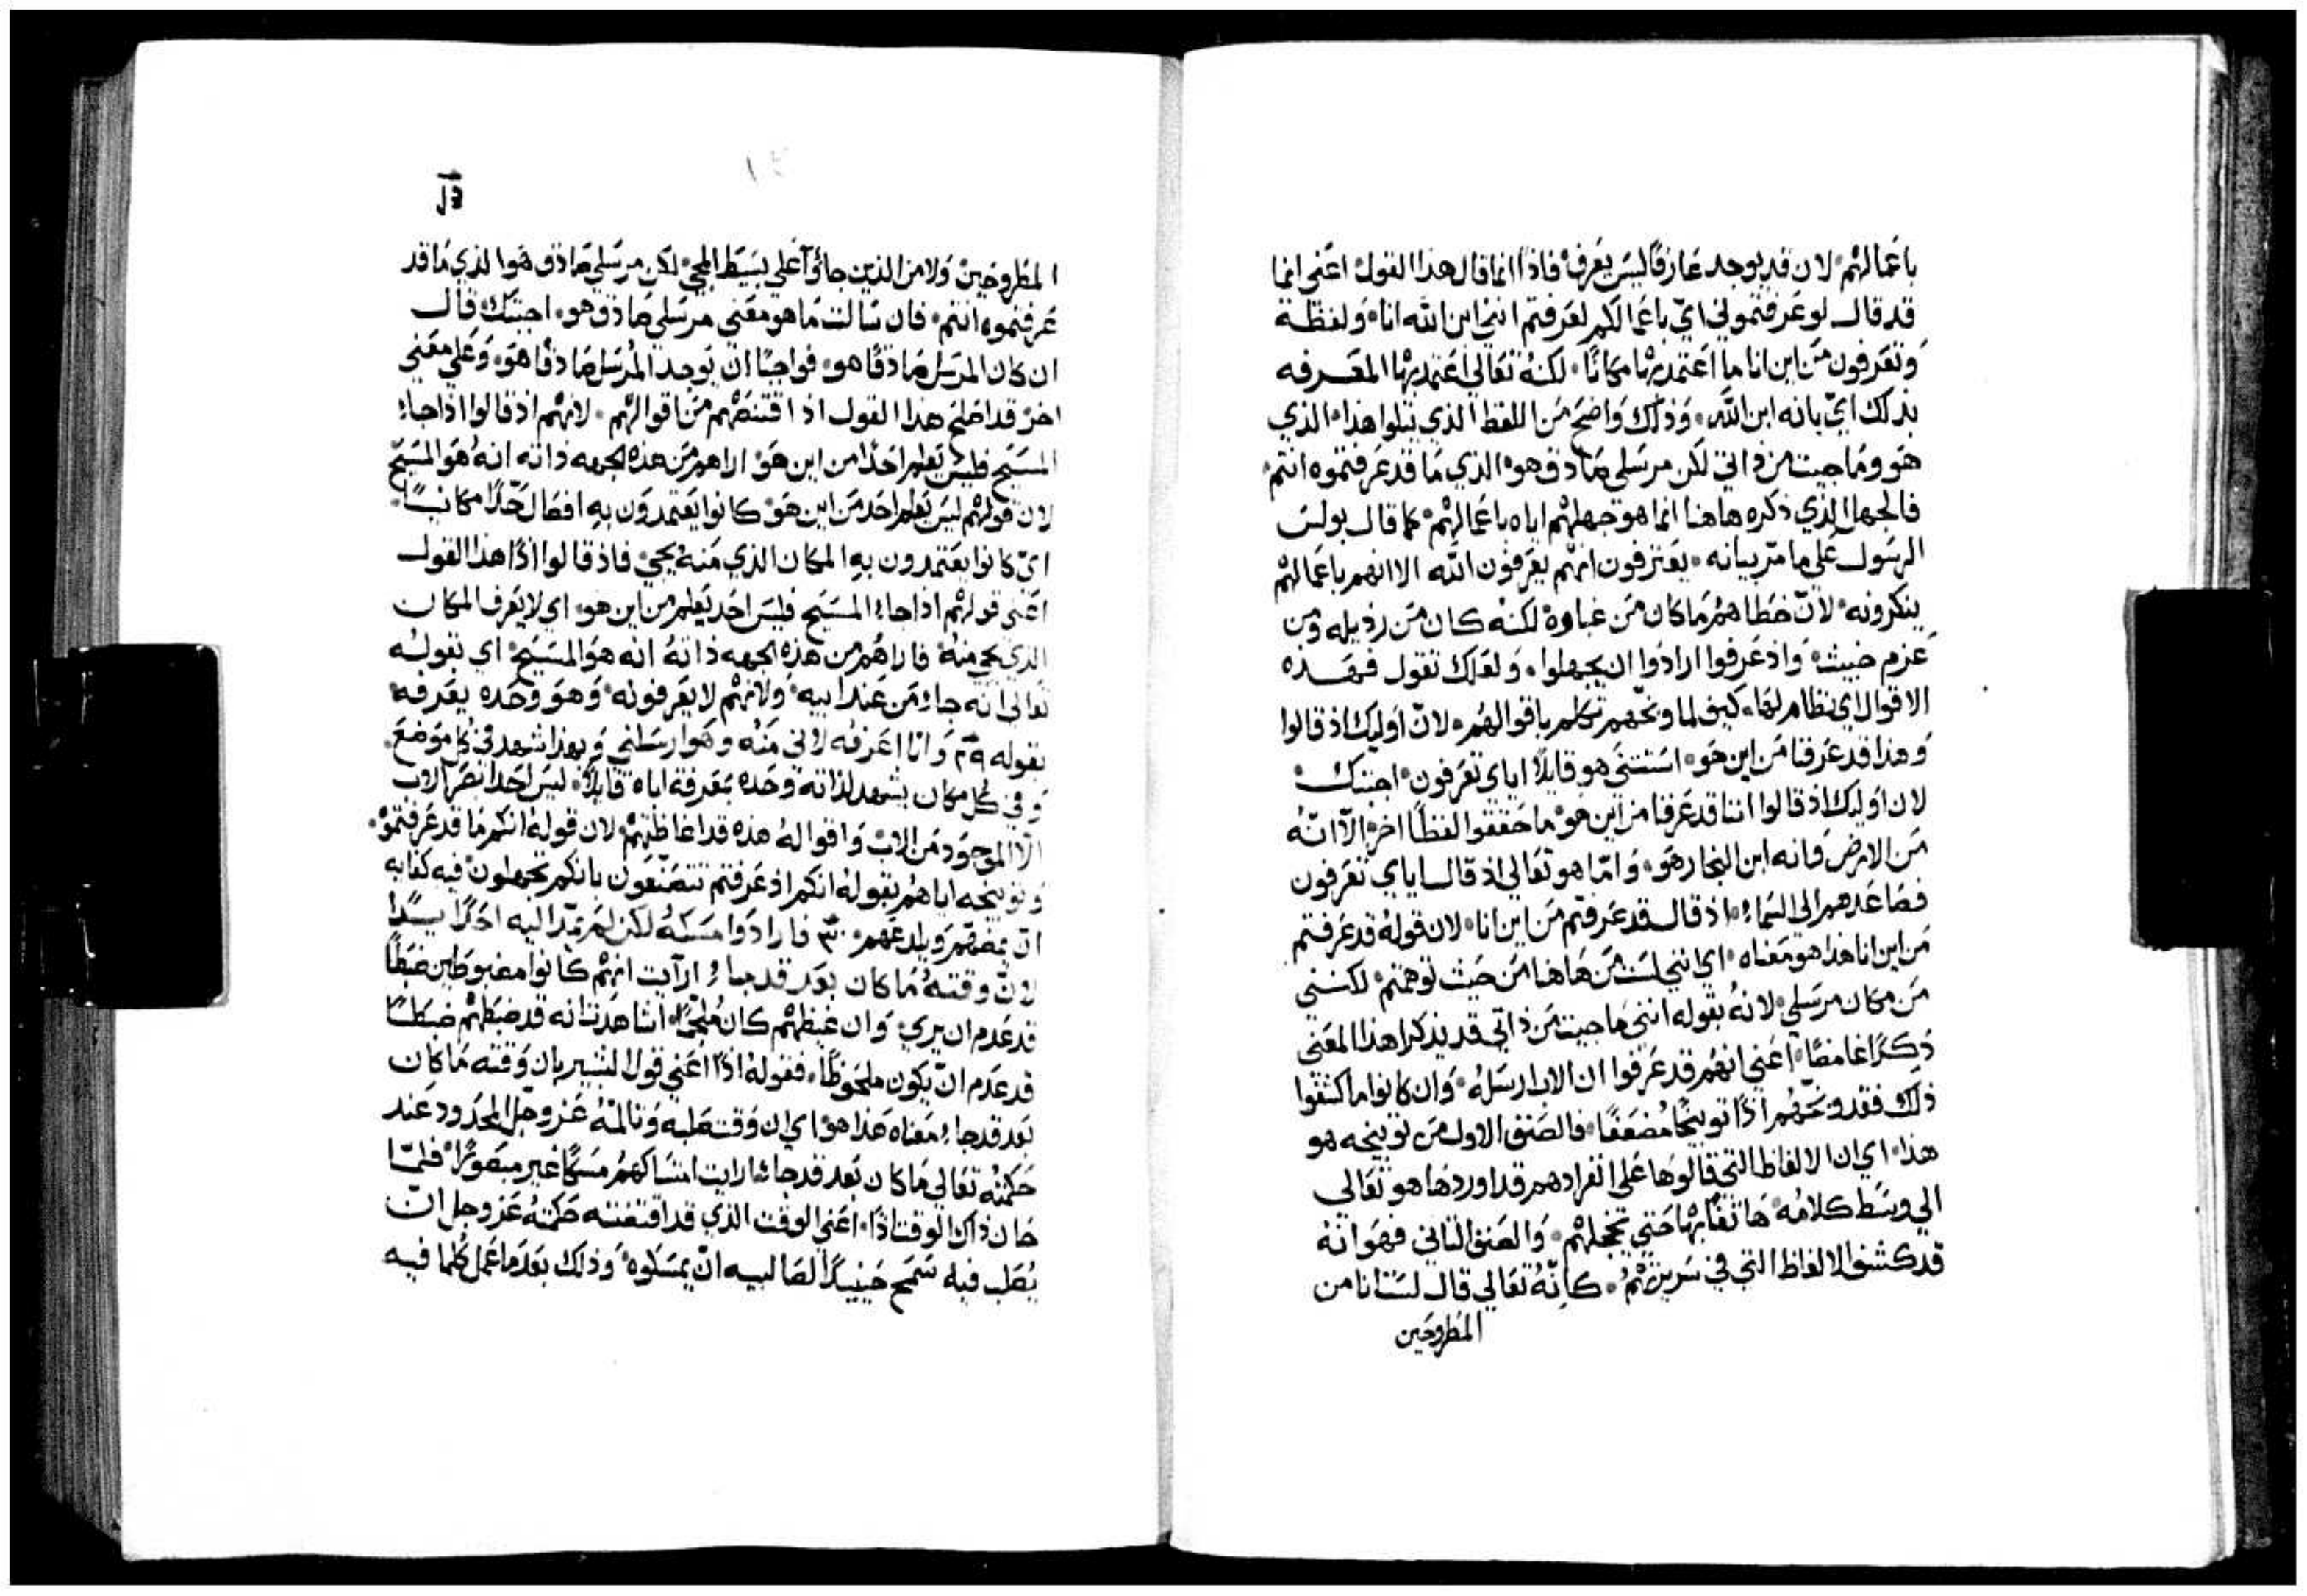 باعمالهم لان قد يوجد عارفًا ليس يعرف فاذًا انما قال هذا القول اعني انما
قد قال لو عرفتموني اي باعمالكم لعرفتم انني ابن الله انا ولفظة
وتعرفون من اين انا ما اعتمد بها مكانًا لكنه تعالي اعتمد بها المعرفه
بذلك اي بانه ابن الله وذلك واضح من اللفظ الذي يتلوا هذا الذي
هو وما جيت من ذاتي لكن مرسلي صادق هو الذي ما قد عرفتموه انتم
فالجهل الذي ذكره هاهنا انما هو جهلهم اياه باعمالهم كما قال بولس
الرسول علي ما مرّ بيانه يعترفون انهم يعرفون الله الا انهم باعمالهم
ينكرونه لانّ خطاهم ما كان من غباوة لكنه كان من رذيله ومن
عزم خبيث واذ عرفوا ارادوا ان يجهلوا ولعلك تقول فهذه
الاقوال اي نظام لها كيف لما وبّخهم تكلم باقوالهم لانّ اوليك اذ قالوا
وهذا قد عرفنا من اين هو استثنى هو قايلًا اياي تعرفون اجبتك
لان اوليك اذ قالوا اننا قد عرفنا من اين هو ما حققوا لفظًا اخر الّا انّه
من الارض وانه ابن النجار هو وامّا هو تعالي اذ قال اياي تعرفون
فصاعدهم الي السماء اذ قال قد عرفتم من اين انا لان قوله قد عرفتم
من اين انا هذا هو معناه اي انني لست من هاهنا من حيث توهمتم لكنني
من مكان مرسلي لانه بقوله انني ما جيت من ذاتي قد يذكر اهذا المعنى
ذكرًا غامضًا اعني انهم قد عرفوا ان الاب ارسله وان كانوا ما كشفوا
ذلك فقد وبّخهم اذًا توبيخًا مضعفًا فالصنف الاول من توبيخه هو
هذا اي ان الالفاظ التي قالوها علي انفرادهم قد اوردها هو تعالي
الي وسط كلامه هاتفًا بها حتي تخجلهم والصنف الثاني فهو انه
قد كشف الالفاظ التي في سريرتهم كانّه تعالي قال لست انا من
المطروحين
المطروحين ولا من الذين جائوا علي بسيط المجي لكن مرسلي صادق هو الذي ما قد
عرفتموه انتم فان سالت ما هو معني مرسلي صادق هو اجبتك قال
ان كان المرسل صادقًا هو فواجبًا ان يوجد المُرسَل صادقًا هو وعلي معني
اخر قد اصلح هذا القول اذ اقتنصهم من اقوالهم لانهم اذ قالوا اذا جاء
المسيح فليس يعلم احدًا من اين هو اراهم من هذه الجهه ذاته انه هو المسيح
لان قولهم ليس يعلم احد من اين هو كانوا يعتمدون به افصال حدًا مكانيًا
ايّ كانوا يعتمدون به المكان الذي منه يجي فاذ قالوا اذًا هذا القول
اعني قولهم اذا جاء المسيح فليس احد يعلم من اين هو اي لا يعرف المكان
الذي يجي منه فاراهم من هذه الجهه ذاته انه هو المسيح اي بقوله
تعالي انه جاء من عند ابيه ولانهم لا يعرفونه وهو وحده يعرفه
بقوله ٢٩ وانا اعرفه لاني منه وهو ارسلني وبهذا شهد في كل موضع
وفي كل مكان يشهد لذاته وحده بمعرفة اباه قايلًا ليس احدًا بصر الاب
الّا الموجود من الاب واقواله هذه قد اغاظتهم لان قوله انكم ما قد عرفتموه
وتوبيخه اياهم بقوله انكم اذ عرفتم تتصنّعون بانكم تجهلون فيه كفايه
ان يمضهم ويلدغهم ٣٠ فارادوا مسكه لكن لم يمد اليه احدًا يدًا
لانّ وقته ما كان بعد قد جاء ارآيت انهم كانوا مضبوطين ضبطًا
قد عدم ان يري وان غيظهم كان ملجّمًا اشاهدت انه قد ضبطهم ضبطًا
قد عدم انّ يكون ملحوظًا فقوله اذًا اعني قول البشير بان وقته ما كان
بعد قد جاء معناه هذا هو اي ان وقت صلبه وتالمه عز وجل المحدود عند
حكمته تعالي ما كان بعد قد جاء ارايت امساكهم مسكًا غير منصورًا فلمّا
حان ذاك الوقت اذًا اعني الوقت الذي قد اقتضته حكمته عز وجل انّ
يُصلب فيه سمح حينيذٍ الصالبيه انّ يمسكوه وذلك بعد ما عمل كلما فيه